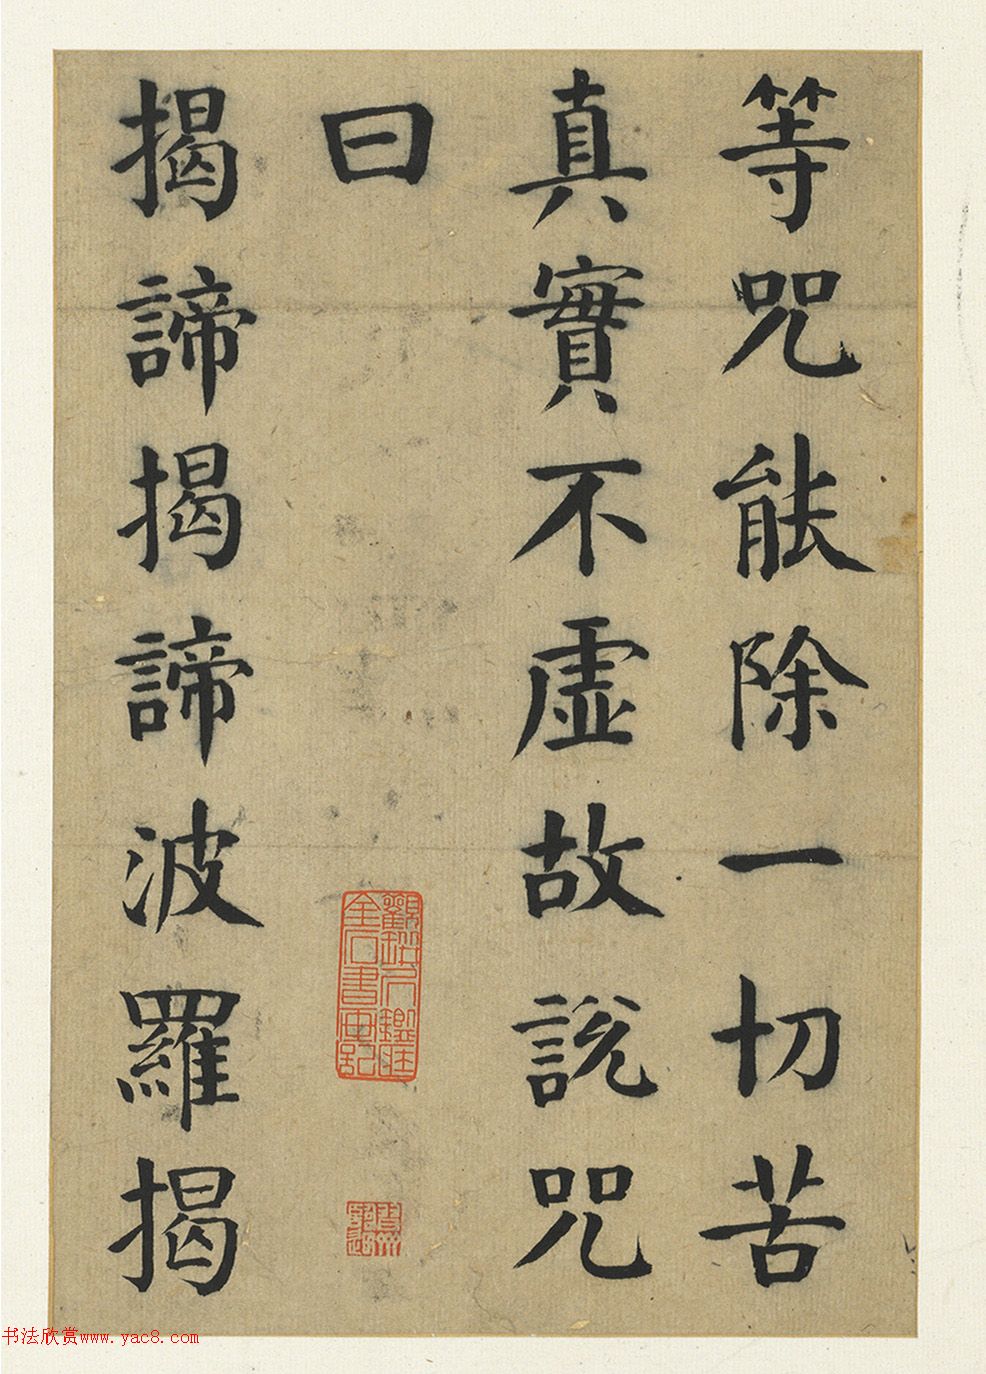 等咒能除一切苦
真實不虛故說咒
曰
揭諦揭諦波羅揭
书法欣赏www.yac8.com